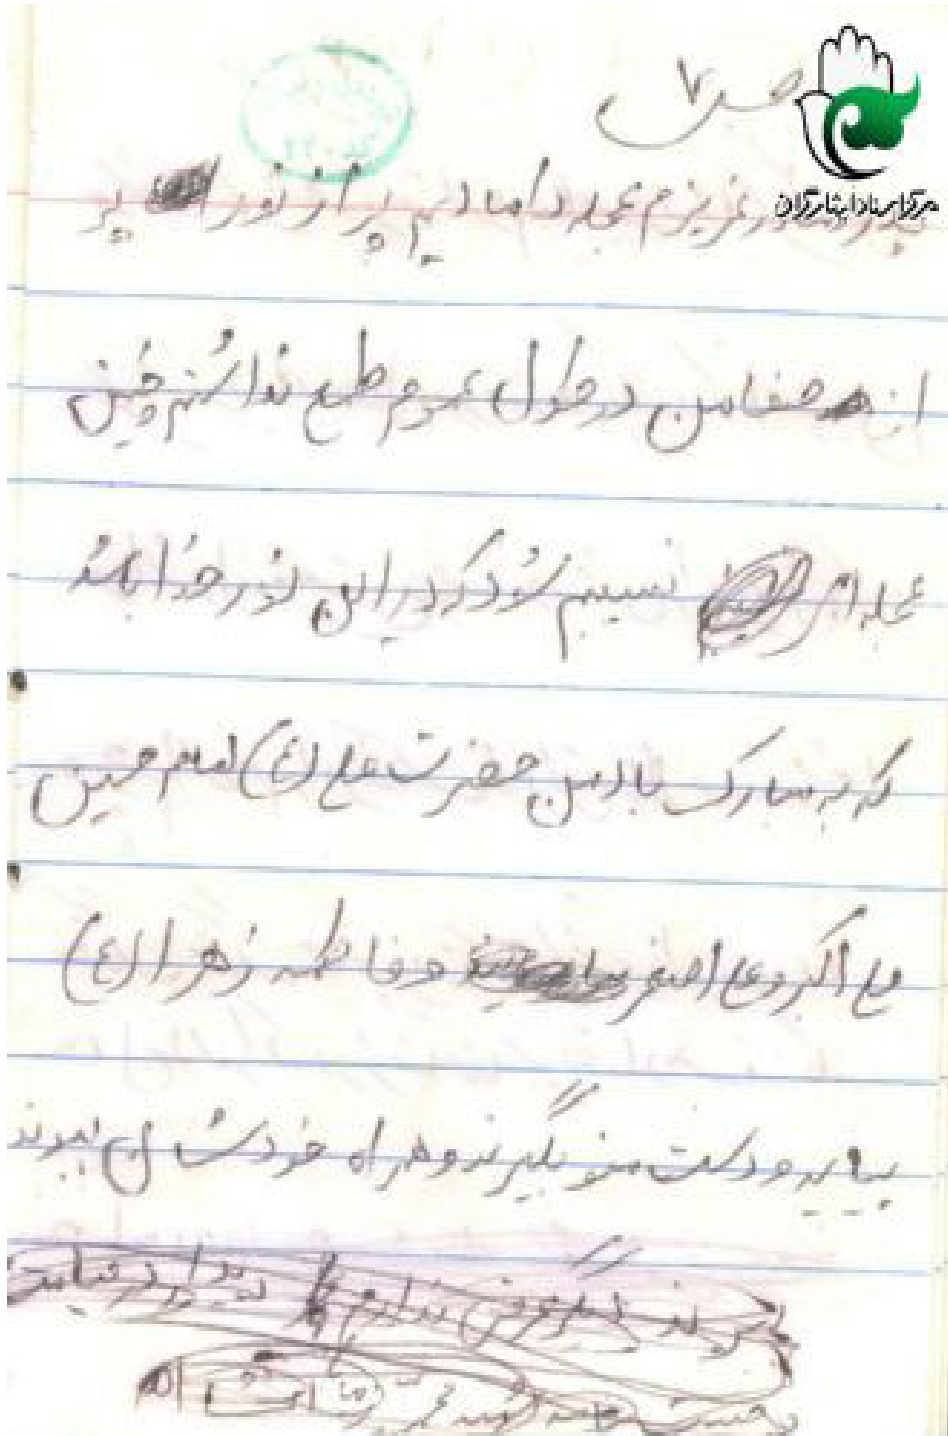 ص ۷
مرکز اسناد ایثارگران
پدر و مادر عزیزم حجله دامادیم پر از نور پر
از صفا من در طول عمرم طمع نداشتم چنین
حجله ای نسیبم شود که در این نور خدا باشد
که به مبارک بادمن حضرت علی (ع) امام حسین
علی اکبر و علی اصغر و فاطمه زهرا (ع)
بیایید و دست منو بگیرند و همراه خودشان ببرند
دیگر عرضی ندارم